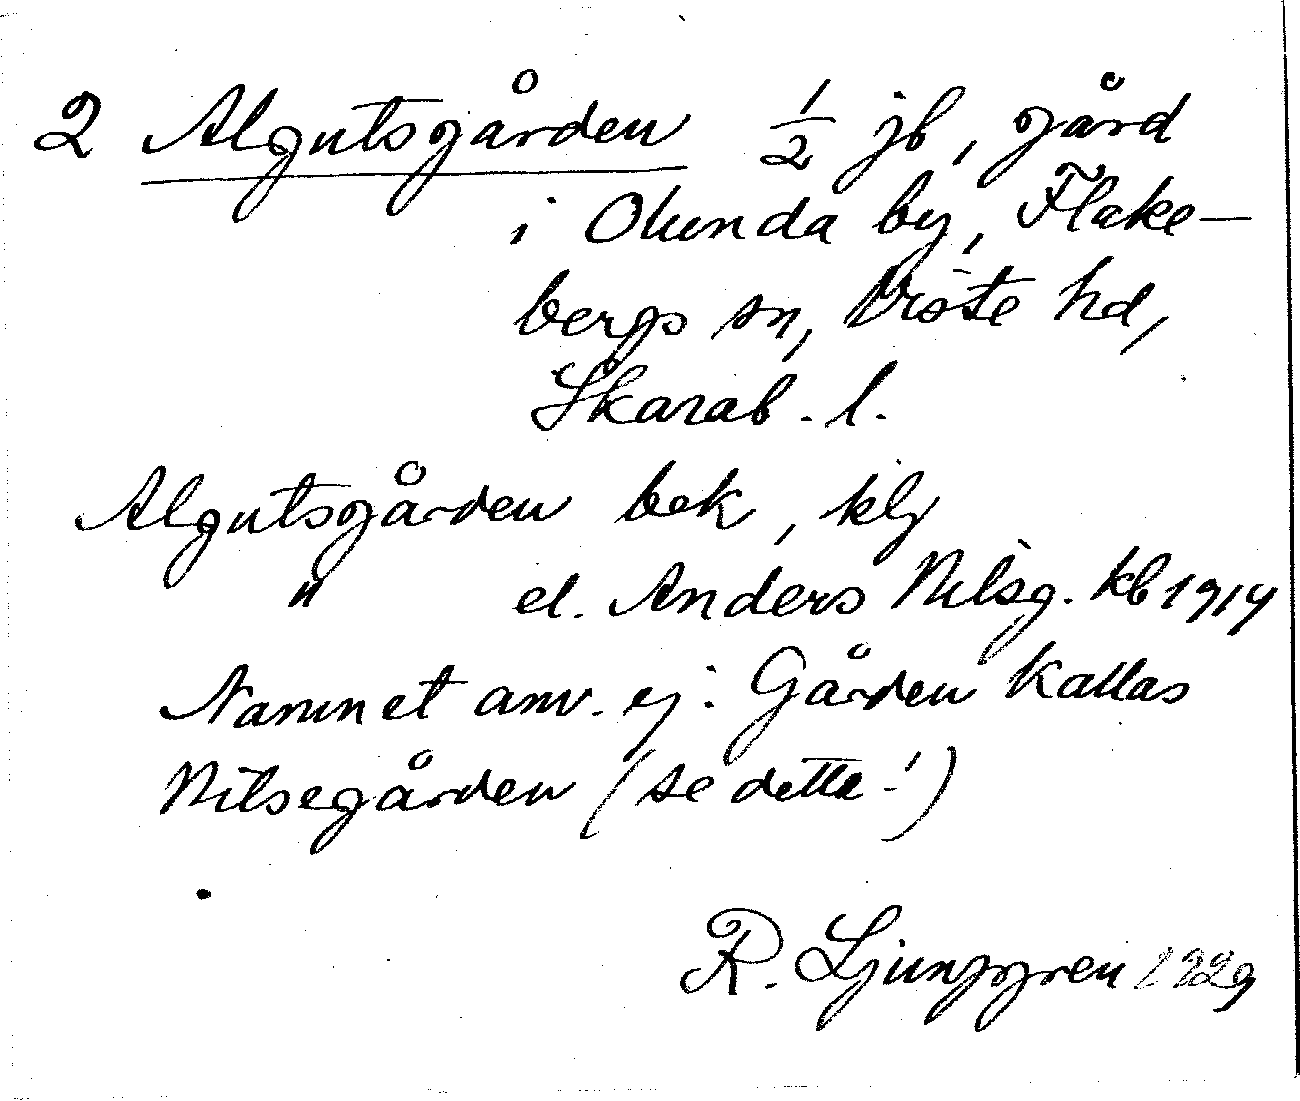 2 Algutsgården ½ jb, gård
i Olunda by, Flake-
bergs sn, Viste hd,
Skarab. l.
Algutsgården bek, klj
" el. Anders Nilsg. kb 1914
Namnet anv. ej. Gården kallas
Nilsegården (se detta!)
R. Ljunggren 1929